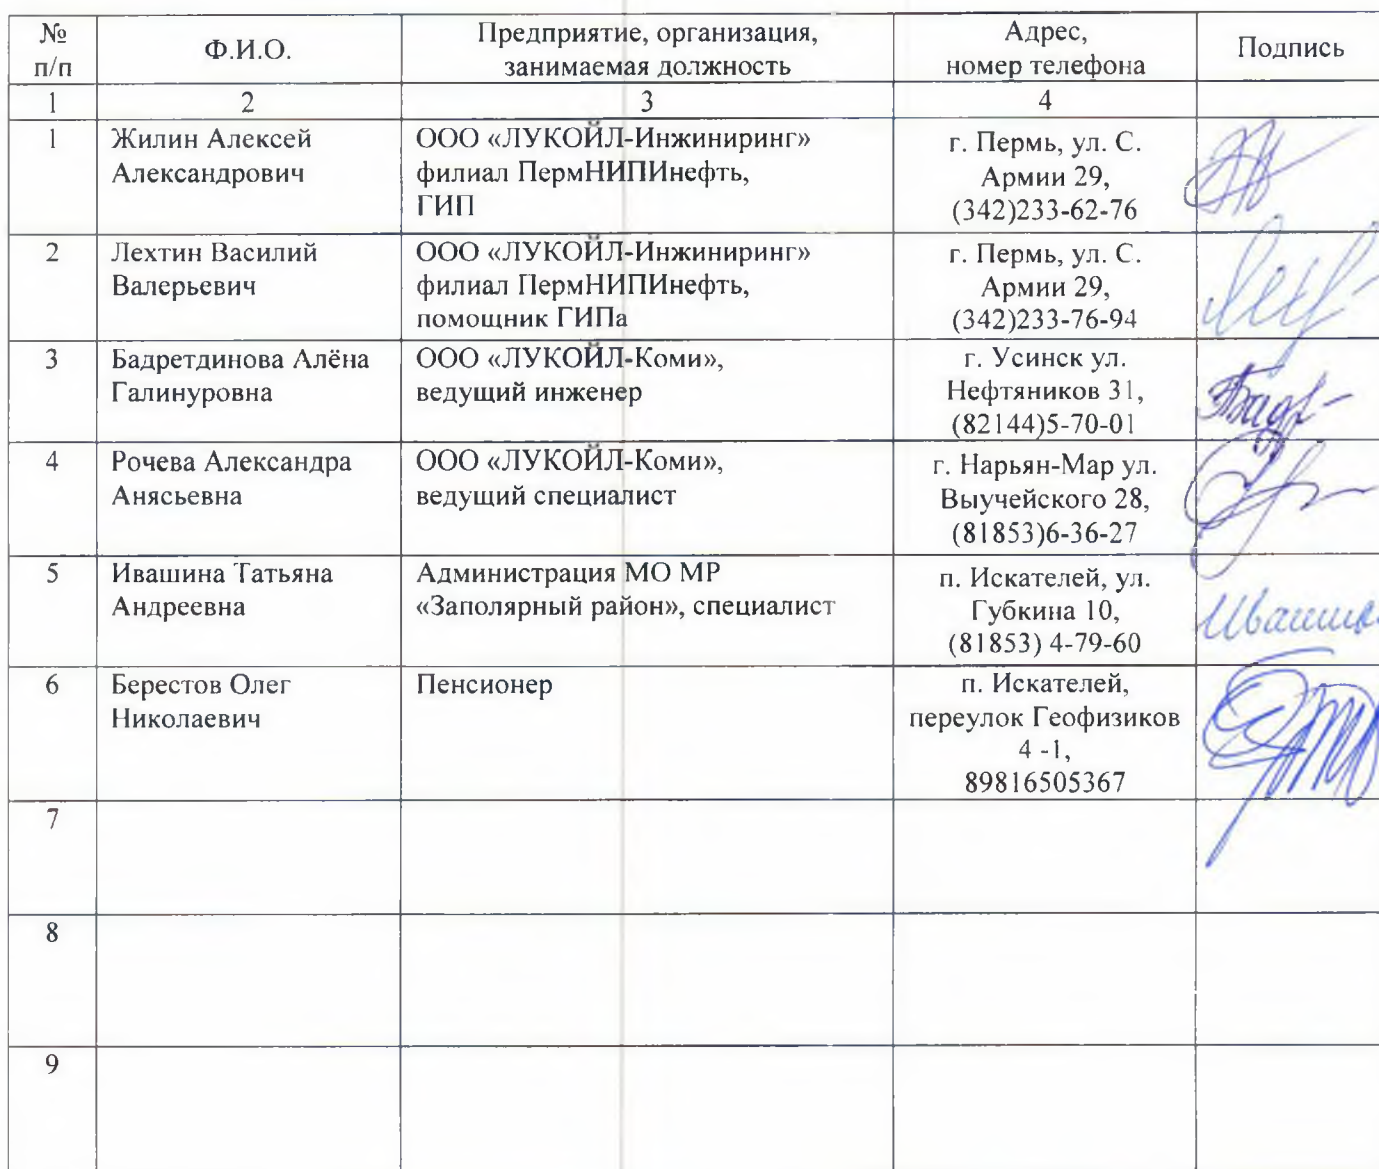 №
п/п
Ф.И.О.
Предприятие, организация,
занимаемая должность
Адрес,
номер телефона
Подпись
1
2
3
4
1
Жилин Алексей
Александрович
ООО «ЛУКОЙЛ-Инжиниринг»
филиал ПермНИПИнефть,
ГИП
г. Пермь, ул. С.
Армии 29,
(342)233-62-76
2
Лехтин Василий
Валерьевич
ООО «ЛУКОЙЛ-Инжиниринг»
филиал ПермНИПИнефть,
помощник ГИПа
г. Пермь, ул. С.
Армии 29,
(342)233-76-94
3
Бадретдинова Алёна
Галинуровна
ООО «ЛУКОЙЛ-Коми»,
ведущий инженер
г. Усинск ул.
Нефтяников 31,
(82144)5-70-01
4
Рочева Александра
Анясьевна
ООО «ЛУКОЙЛ-Коми»,
ведущий специалист
г. Нарьян-Мар ул.
Выучейского 28,
(81853)6-36-27
5
Ивашина Татьяна
Андреевна
Администрация МО МР
«Заполярный район», специалист
п. Искателей, ул.
Губкина 10,
(81853) 4-79-60
6
Берестов Олег
Николаевич
Пенсионер
п. Искателей,
переулок Геофизиков
4 -1,
89816505367
7
8
9